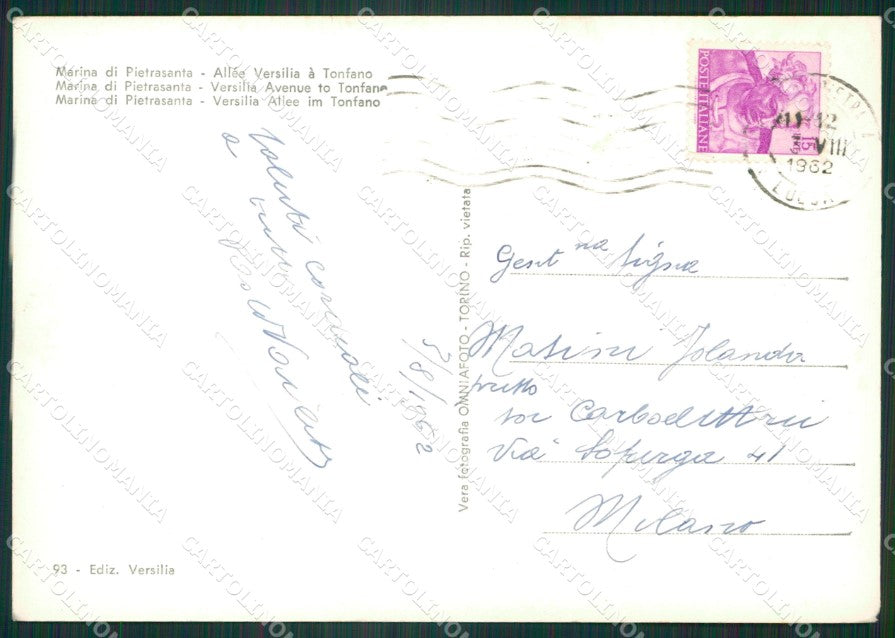 Marina di Pietrasanta - Allée Versilia à Tonfano
Marina di Pietrasanta - Versilia Avenue to Tonfano
Marina di Pietrasanta - Versilia Atlee im Tonfano
POSTE ITALIANE
15
11-12
VIII
1962
LUCCA
Saluti cordiali
a
5/8/1962
Vera fotografia OMNIAFOTO - TORINO - Rip. vietata
Gent na Sigra
Masini Jolanda
presso
Via Soperga 41
Milano
93 - Ediz. Versilia
CARTOLINOMANIA